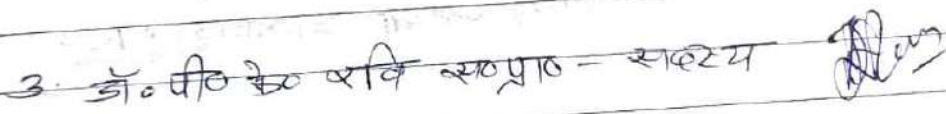 3. डॉ० पी० के० रवि स०प्रा० - सदस्य